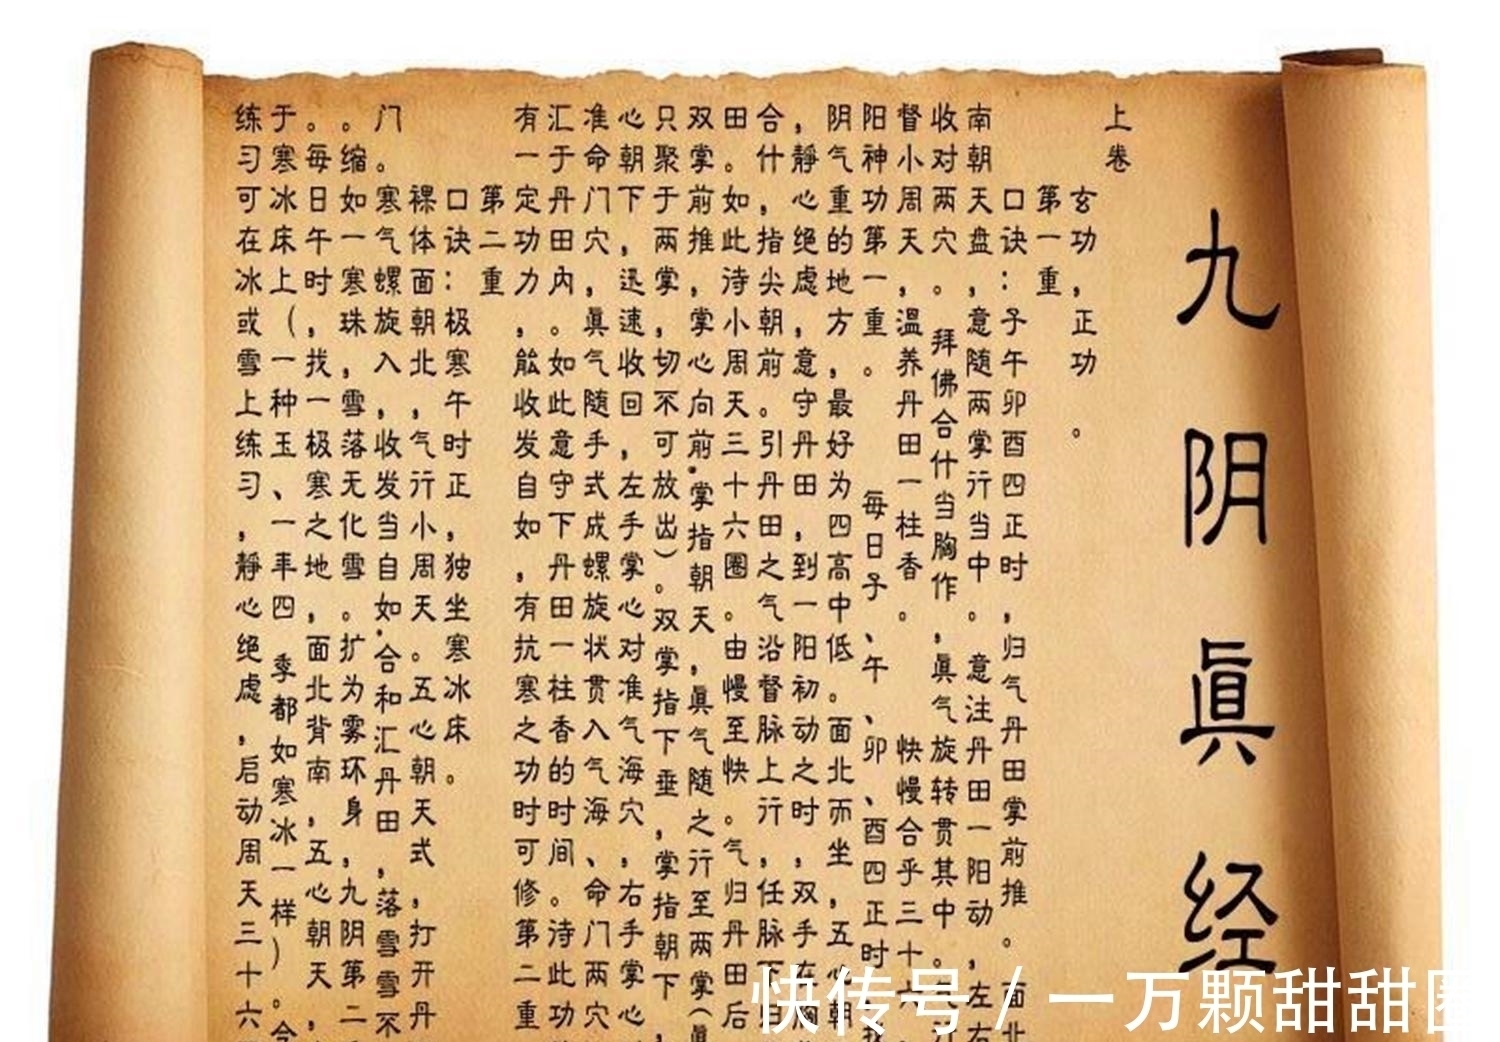 九阴眞经
上卷
玄功，正功。
第一重
口诀：子午卯酉四正时，归气丹田掌前推。面北
南朝天盘，意随两掌行当中。意注丹田一阳动，左右
收对两穴。拜佛合什当胸作，眞气旋转贯其中。
督小周天，温养丹田一柱香。快慢合乎三十六
阳神功第一重。每日子、午、卯、酉四正时，
阴气重的地方，最好为四高中低。面北而坐，五心朝
，静心绝虑，意守丹田，到一阳初动之时，双手在胸
合什，指尖朝前。引丹田之气沿督脉上行，任脉下归
田。如此待小周天三十六圈。由慢至快。气归丹田后
双掌前推，掌心向前.掌指朝天，眞气随之行至两掌（眞
只聚于两掌，切不可放出）。双掌指下垂，掌指朝下
心朝下，迅速收回，左手掌心对准气海穴，右手掌心
准命门穴，眞气随手式成螺旋状贯入气海、命门两穴
汇于丹田内。如此意守下丹田一柱香的时间。待此功
有一定功力，能收发自如，有抗寒之功时可修第二重
第二重
口诀：极寒午时正，独坐寒冰床。
裸体面朝北，气行小周天。五心朝天式，打开丹
门。寒气螺旋入，收发当自如.合和汇丹田，落雪雪不
。缩如一寒珠，雪落无化雪。扩为雾环身，九阴第二
。每日午时，找一极寒之地，面北背南，五心朝天，
于寒冰床上（一种玉、一年四季都如寒冰一样）。
练习可在冰或雪上练习，静心绝虑，启动周天三十六
快传号/一万颗甜甜圈